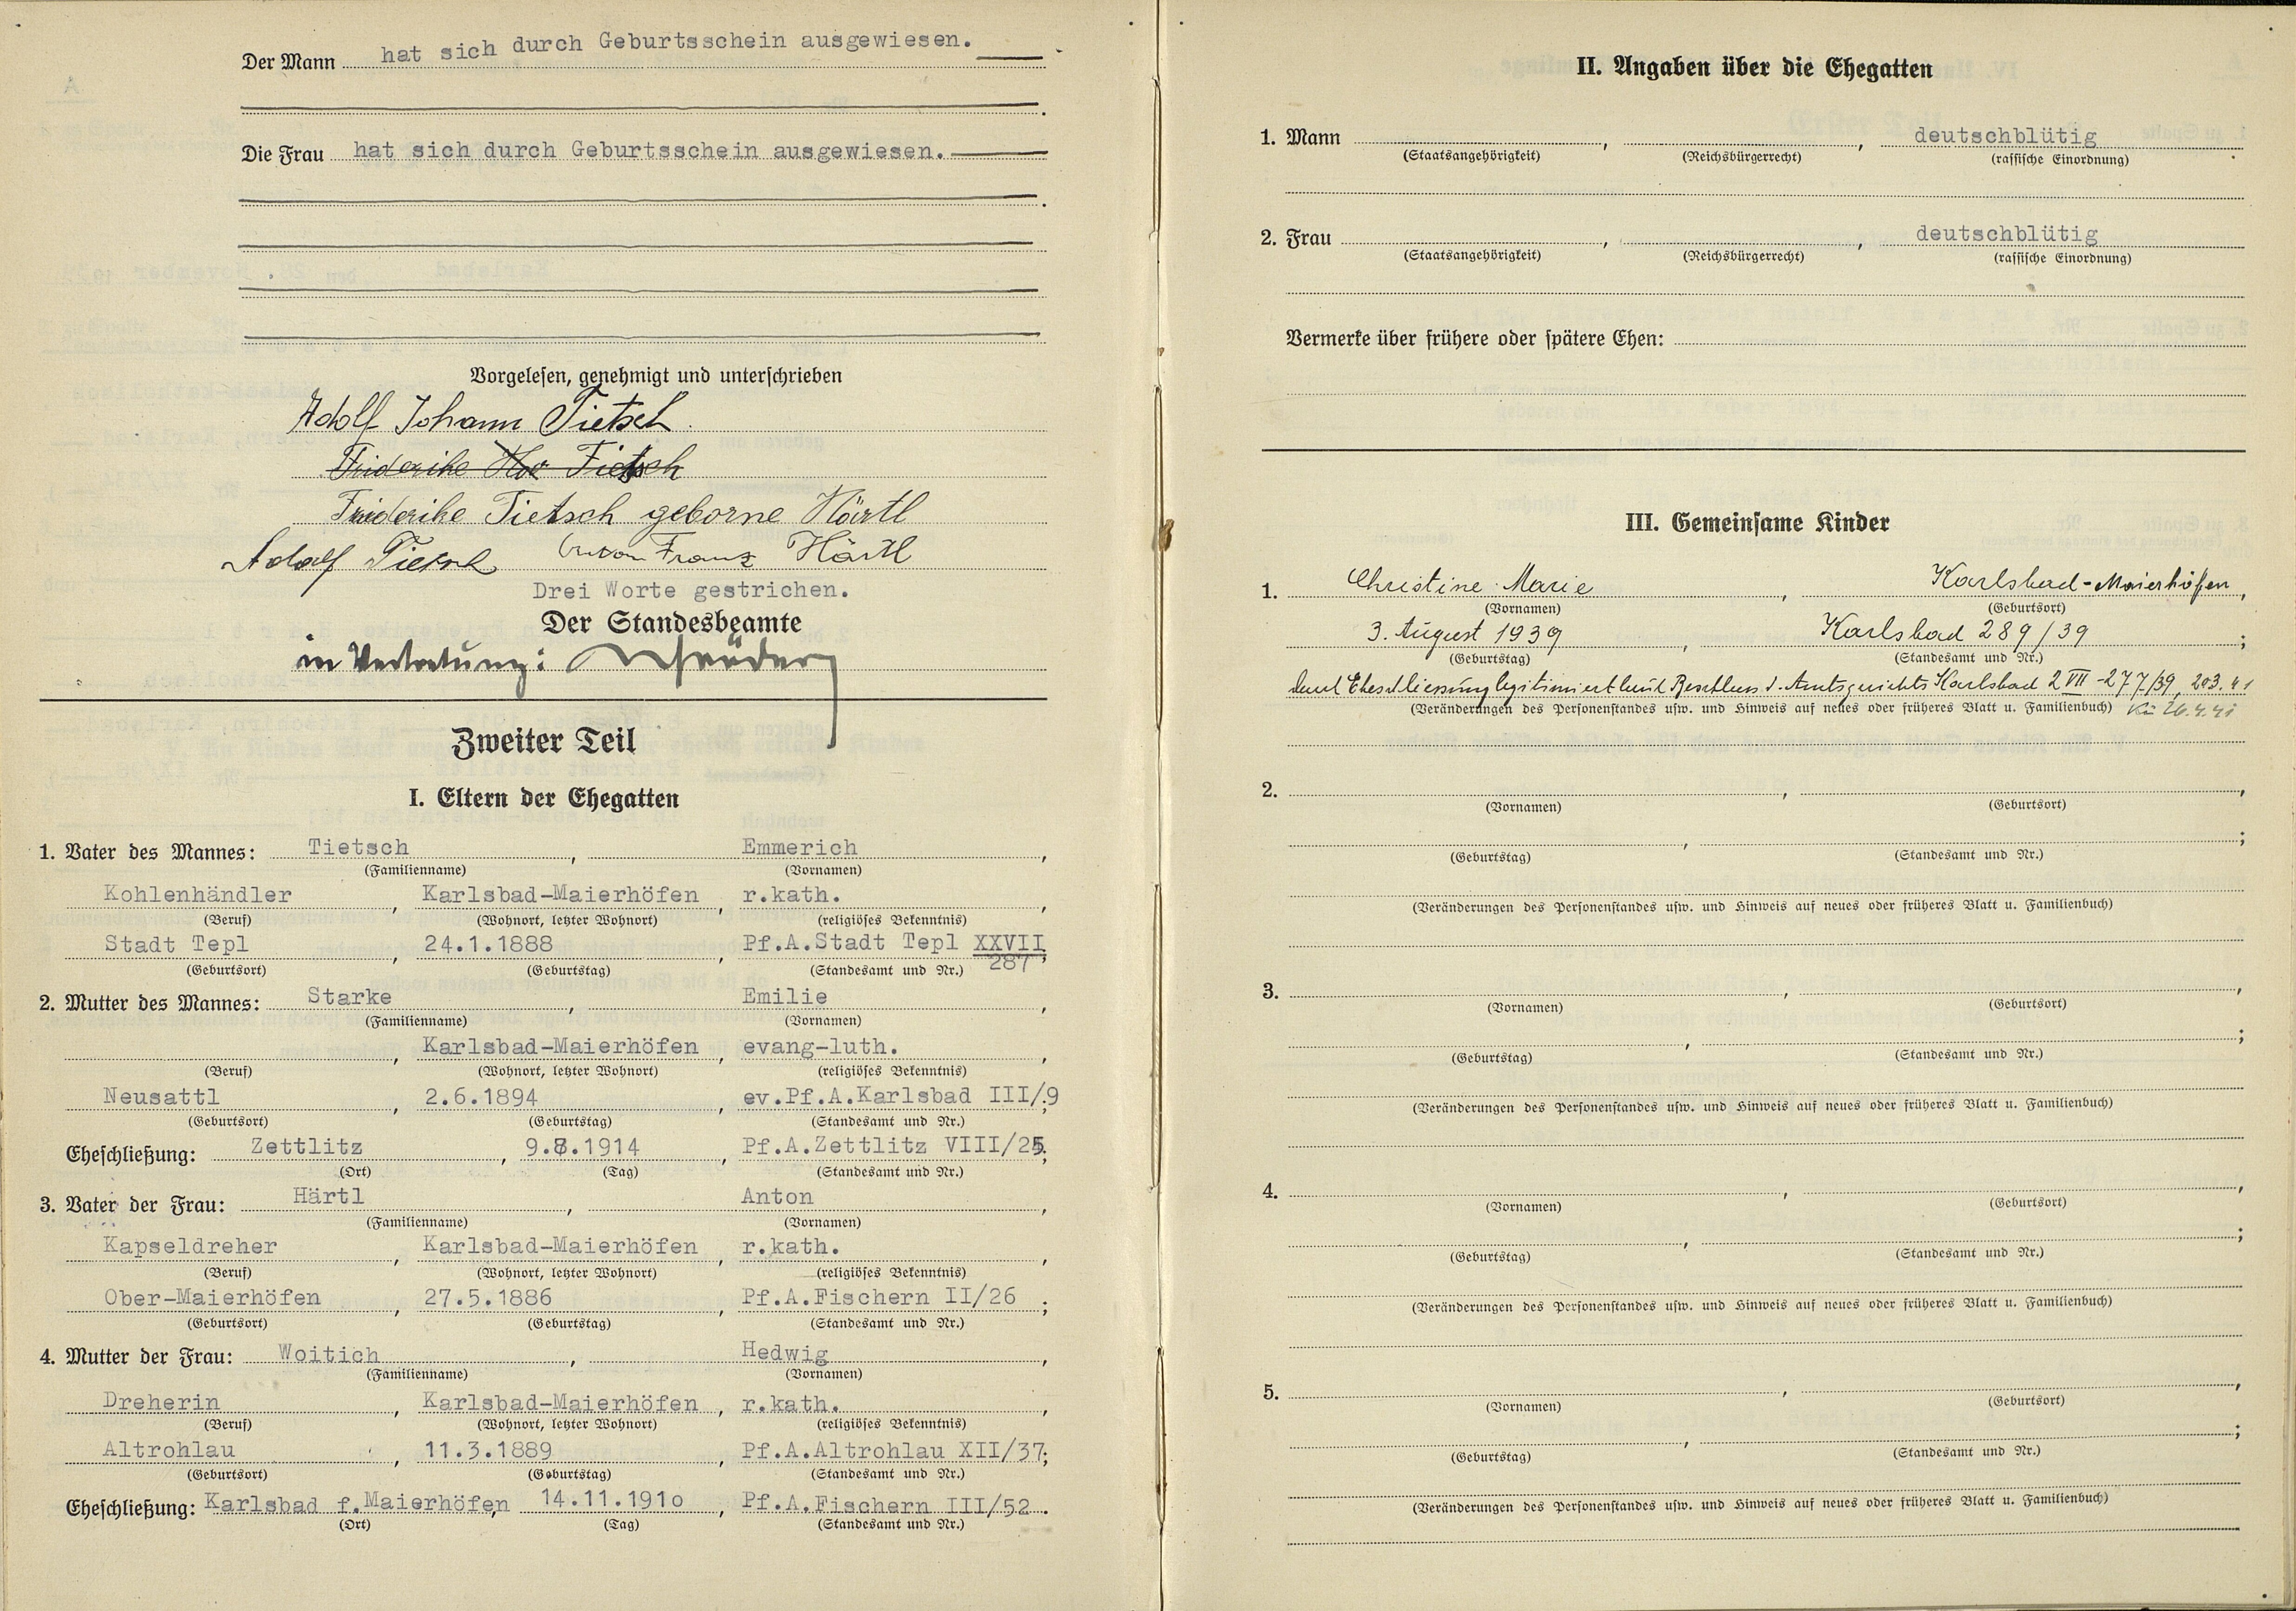 Der Mann hat sich durch Geburtsschein ausgewiesen.
Die Frau hat sich durch Geburtsschein ausgewiesen.
Vorgelesen, genehmigt und unterschrieben
Adolf Johann Tietsch
Friderike Här Tietsch
Friderike Tietsch geborne Härtl
Adolf Tietsch Anton Franz Härtl
Drei Worte gestrichen.
Der Standesbeamte
in Vertretung:
Zweiter Teil
I. Eltern der Ehegatten
1. Vater des Mannes: Tietsch, Emmerich,
(Familienname) (Vornamen)
Kohlenhändler, Karlsbad-Maierhöfen, r.kath.,
(Beruf) (Wohnort, letzter Wohnort) (religiöses Bekenntnis)
Stadt Tepl, 24.1.1888, Pf.A.Stadt Tepl XXVII;
(Geburtsort) (Geburtstag) (Standesamt und Nr.) 287
2. Mutter des Mannes: Starke, Emilie,
(Familienname) (Vornamen)
, Karlsbad-Maierhöfen, evang-luth.,
(Beruf) (Wohnort, letzter Wohnort) (religiöses Bekenntnis)
Neusattl, 2.6.1894, ev.Pf.A.Karlsbad III/9;
(Geburtsort) (Geburtstag) (Standesamt und Nr.)
Eheschließung: Zettlitz, 9.8.1914, Pf.A.Zettlitz VIII/25;
(Ort) (Tag) (Standesamt und Nr.)
3. Vater der Frau: Härtl, Anton,
(Familienname) (Vornamen)
Kapseldreher, Karlsbad-Maierhöfen, r.kath.,
(Beruf) (Wohnort, letzter Wohnort) (religiöses Bekenntnis)
Ober-Maierhöfen, 27.5.1886, Pf.A.Fischern II/26;
(Geburtsort) (Geburtstag) (Standesamt und Nr.)
4. Mutter der Frau: Woitich, Hedwig,
(Familienname) (Vornamen)
Dreherin, Karlsbad-Maierhöfen, r.kath.,
(Beruf) (Wohnort, letzter Wohnort) (religiöses Bekenntnis)
Altrohlau, 11.3.1889, Pf.A.Altrohlau XII/37;
(Geburtsort) (Geburtstag) (Standesamt und Nr.)
Eheschließung: Karlsbad f.Maierhöfen, 14.11.1910, Pf.A.Fischern III/52.
(Ort) (Tag) (Standesamt und Nr.)
II. Angaben über die Ehegatten
1. Mann , , deutschblütig
(Staatsangehörigkeit) (Reichsbürgerrecht) (rassische Einordnung)
2. Frau , , deutschblütig
(Staatsangehörigkeit) (Reichsbürgerrecht) (rassische Einordnung)
Vermerke über frühere oder spätere Ehen:
III. Gemeinsame Kinder
1. Christine Marie, Karlsbad-Maierhöfen,
(Vornamen) (Geburtsort)
3. August 1939, Karlsbad 289/39;
(Geburtstag) (Standesamt und Nr.)
durch Eheschliessung legitimiert laut Beschluss d. Amtsgerichts Karlsbad 2 VII -277/39, 203.41
(Veränderungen des Personenstandes usw. und Hinweis auf neues oder früheres Blatt u. Familienbuch) 26.4.41
2. , ,
(Vornamen) (Geburtsort)
, ;
(Geburtstag) (Standesamt und Nr.)
(Veränderungen des Personenstandes usw. und Hinweis auf neues oder früheres Blatt u. Familienbuch)
3. , ,
(Vornamen) (Geburtsort)
, ;
(Geburtstag) (Standesamt und Nr.)
(Veränderungen des Personenstandes usw. und Hinweis auf neues oder früheres Blatt u. Familienbuch)
4. , ,
(Vornamen) (Geburtsort)
, ;
(Geburtstag) (Standesamt und Nr.)
(Veränderungen des Personenstandes usw. und Hinweis auf neues oder früheres Blatt u. Familienbuch)
5. , ,
(Vornamen) (Geburtsort)
, ;
(Geburtstag) (Standesamt und Nr.)
(Veränderungen des Personenstandes usw. und Hinweis auf neues oder früheres Blatt u. Familienbuch)